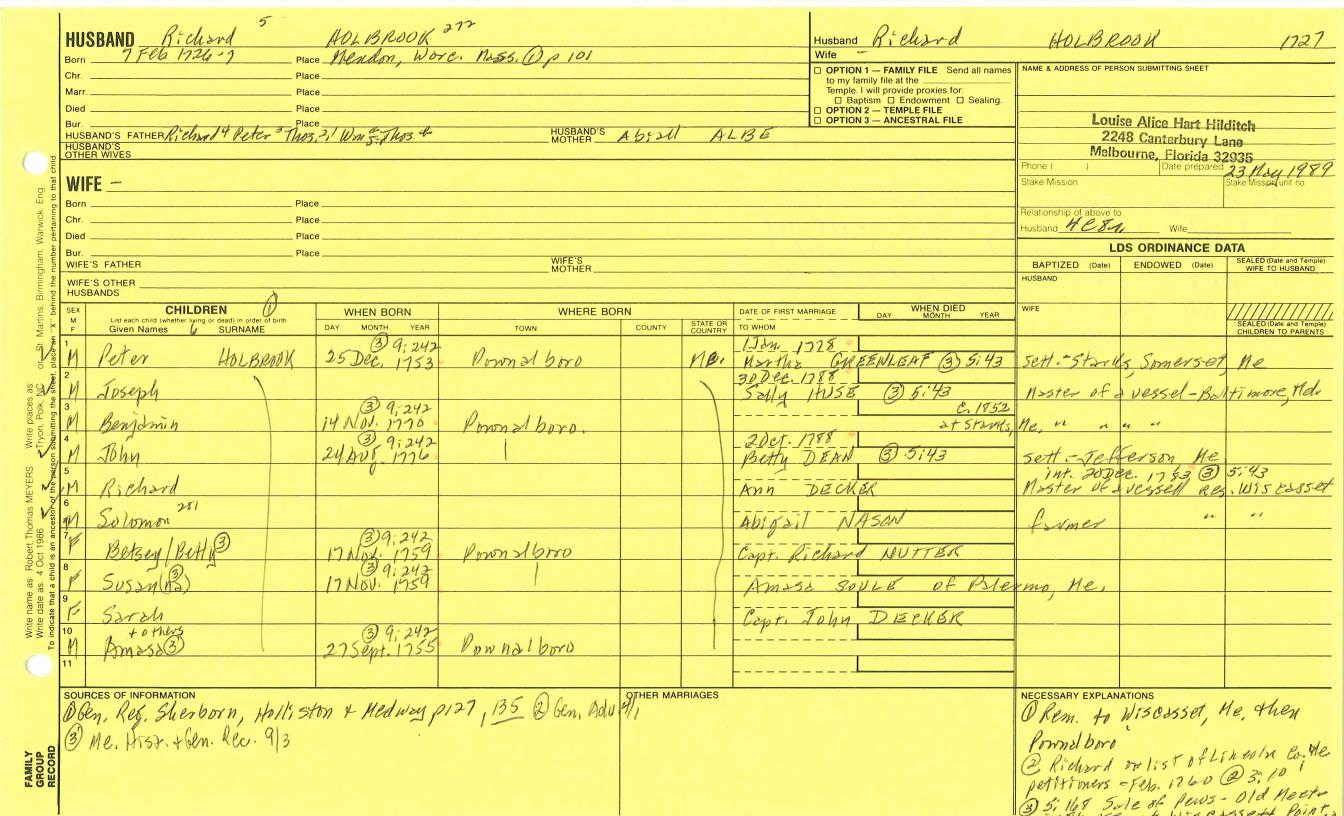 HUSBAND Richard 5 HOLBROOK 272
Born 7 Feb 1726-7 Place Mendon, Worc. Mass. ① p 101
Chr. Place
Marr. Place
Died Place
Bur. Place
HUSBAND'S FATHER Richard 4 Peter 3 Thos. 2, 1 Wm Thos HUSBAND'S MOTHER Abiall ALBE
HUSBAND'S OTHER WIVES
WIFE –
Born Place
Chr. Place
Died Place
Bur. Place
WIFE'S FATHER WIFE'S MOTHER
WIFE'S OTHER HUSBANDS
Husband Richard HOLBROOK 1727
Wife –
☐ OPTION 1 — FAMILY FILE Send all names
to my family file at the
Temple. I will provide proxies for:
☐ Baptism ☐ Endowment ☐ Sealing.
☐ OPTION 2 — TEMPLE FILE
☐ OPTION 3 — ANCESTRAL FILE
NAME & ADDRESS OF PERSON SUBMITTING SHEET
Louise Alice Hart Hilditch
2248 Canterbury Lane
Melbourne, Florida 32935
Phone ( ) Date prepared 23 May 1989
Stake Mission Stake Mission unit no.
Relationship of above to
Husband 4C8r Wife
LDS ORDINANCE DATA
BAPTIZED (Date) ENDOWED (Date) SEALED (Date and Temple) WIFE TO HUSBAND
HUSBAND
WIFE
SEALED (Date and Temple) CHILDREN TO PARENTS
SEX M F CHILDREN ① WHEN BORN WHERE BORN DATE OF FIRST MARRIAGE WHEN DIED
List each child (whether living or dead) in order of birth
Given Names SURNAME DAY MONTH YEAR TOWN COUNTY STATE OR COUNTRY TO WHOM DAY MONTH YEAR
③ 9:242 1 Jan. 1778
1 M Peter HOLBROOK 25 Dec. 1753 Pownalboro Me. Martha GREENLEAF ③ 5:43 sett.-Starks, Somerset, Me
30 Dec. 1788
2 M Joseph Sally HUSE ③ 5:43 Master of a vessel-Baltimore, Md.
③ 9:242 c. 1852
3 M Benjamin 14 Nov. 1770 Pownalboro. at Starks, Me. " " " "
③ 9:242 2 Oct. 1788
4 M John 24 Aug. 1776 Betty DEAN ③ 5:43 sett.-Jefferson Me
int. 20 Dec. 1783 ③ 5:43
5 M Richard Ann DECKER Master of a vessell res. Wiscasset
6 M Solomon 281 Abigail NASON farmer " "
③ 9:242
7 F Betsey/Betty ③ 17 Nov. 1759 Pownalboro Capt. Richard NUTTER
③ 9:242
8 F Susan(na) ③ 17 Nov. 1759 Amasa SOULE of Palermo, Me.
9 F Sarah Capt. John DECKER
+ others ③ 9:242
10 M Amasa ③ 27 Sept. 1755 Pownalboro
11
SOURCES OF INFORMATION
① Gen. Reg. Sherborn, Holliston & Medway p127, 135 ② Gen. Adv.
③ Me. Hist. & Gen. Rec. 9/3
OTHER MARRIAGES
NECESSARY EXPLANATIONS
① Rem. to Wiscasset, Me, then
Pownalboro
② Richard on list of Lincoln Co. Me
petitioners - Feb. 1760 ② 3:10
③ 5:168 Sale of Pews - Old Meet
Point,
Write name as Robert Thomas MEYERS Write places as Tryon, Polk, NC or St. Martins, Birmingham, Warwick, Eng.
Write date as 4 Oct 1986
To indicate that a child is an ancestor of the person submitting the sheet, place an "X" behind the number pertaining to that child.
FAMILY
GROUP
RECORD